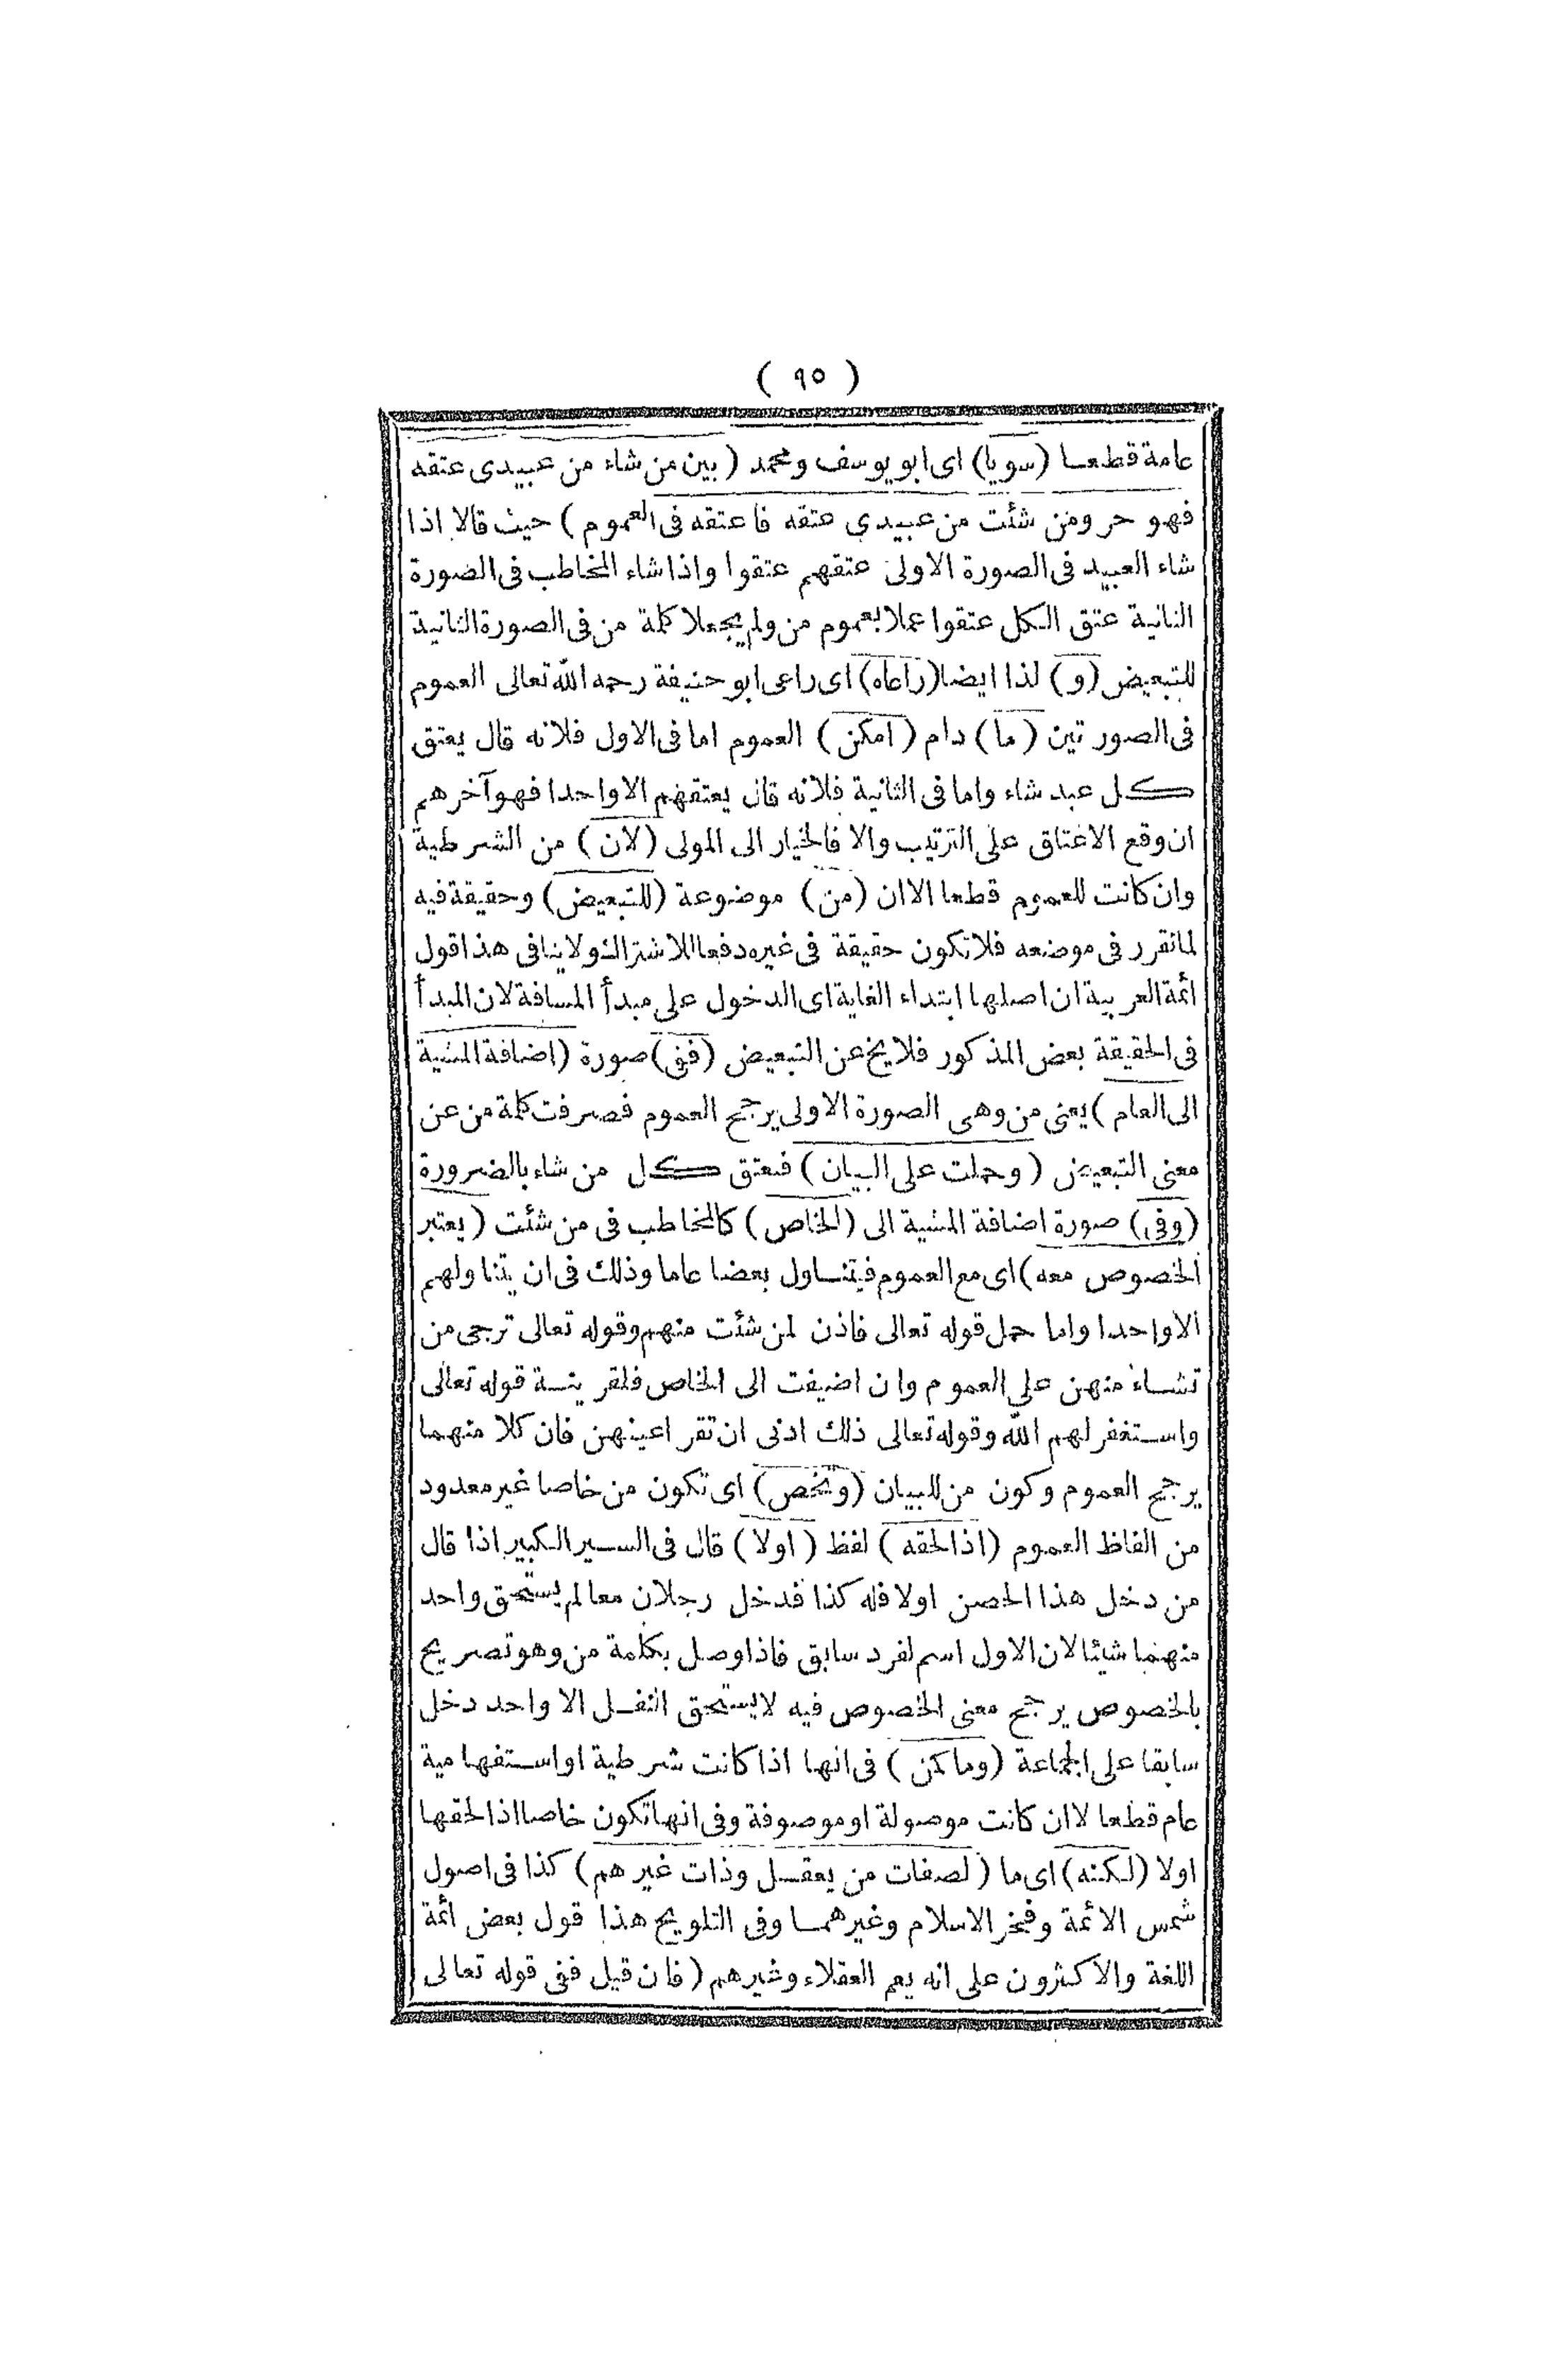 ( ٩٥ )
عامة قطعا (سويا) اى ابو يوسف ومحمد (بين من شاء من عبيدى عتقه
فهو حر ومن شئت من عبيدى عتقه فاعتقه فى العموم) حيث قالا اذا
شاء العبيد فى الصورة الاولى عتقهم عتقوا واذا شاء المخاطب فى الصورة
الثانية عتق الكل عتقوا عملا بعموم من ولم يجعلا كلمة من فى الصورة الثانية
للتبعيض (و) لذا ايضا (راعاه) اى راعى ابو حنيفة رحمه الله تعالى العموم
فى الصورتين (ما) دام (امكن) العموم اما فى الاول فلانه قال يعتق
كل عبد شاء واما فى الثانية فلانه قال يعتقهم الا واحدا فهو آخرهم
ان وقع الاعتاق على الترتيب والا فالخيار الى المولى (لان) من الشرطية
وان كانت للعموم قطعا الا ان (من) موضوعة (للتبعيض) وحقيقة فيه
لما تقرر فى موضعه فلا تكون حقيقة فى غيره دفعا للاشتراك ولا ينافى هذا قول
ائمة العربية ان اصلها ابتداء الغاية اى الدخول على مبدأ المسافة لان المبدأ
فى الحقيقة بعض المذكور فلا يخ عن التبعيض (ففى) صورة (اضافة المشية
الى العام) يعنى من وهى الصورة الاولى يرجح العموم فصرفت كلمة من عن
معنى التبعيض (وحملت على البيان) فيعتق كل من شاء بالضرورة
(وفى) صورة اضافة المشية الى (الخاص) كالمخاطب فى من شئت (يعتبر
الخصوص معه) اى مع العموم فيتناول بعضا عاما وذلك فى ان يتناولهم
الا واحدا واما حمل قوله تعالى فاذن لمن شئت منهم وقوله تعالى ترجى من
تشاء منهن على العموم وان اضيفت الى الخاص فلقرينة قوله تعالى
واستغفر لهم الله وقوله تعالى ذلك ادنى ان تقر اعينهن فان كلا منهما
يرجح العموم وكون من للبيان (وتخص) اى تكون من خاصا غير معدود
من الفاظ العموم (اذا لحقه) لفظ (اولا) قال فى السير الكبير اذا قال
من دخل هذا الحصن اولا فله كذا فدخل رجلان معا لم يستحق واحد
منهما شيئا لان الاول اسم لفرد سابق فاذا وصل بكلمة من وهو تصريح
بالخصوص يرجح معنى الخصوص فيه لا يستحق النفل الا واحد دخل
سابقا على الجماعة (وما كمن) فى انها اذا كانت شرطية او استفهامية
عام قطعا لا ان كانت موصولة او موصوفة وفى انها تكون خاصا اذا لحقها
اولا (لكنه) اى ما (لصفات من يعقل وذات غيرهم) كذا فى اصول
شمس الائمة وفخر الاسلام وغيرهما وفى التلويح هذا قول بعض ائمة
اللغة والاكثرون على انه يعم العقلاء وغيرهم (فان قيل ففى قوله تعالى